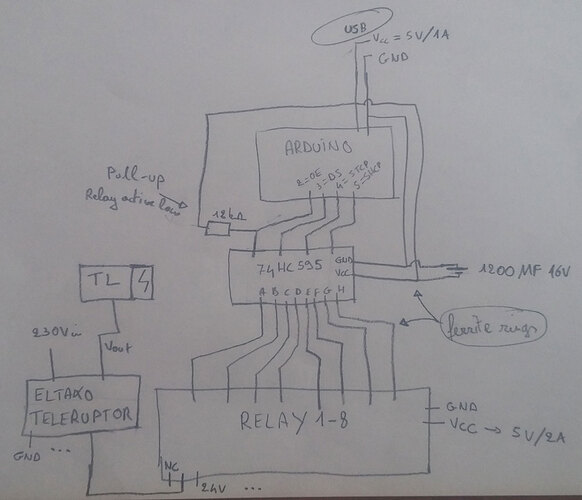 USB
Vcc = 5V/1A
GND
ARDUINO
2=OE
3=DS
4=STCP
5=SHCP
Pull-up
Relay active low
12kΩ
74HC595
GND
VCC
A B C D E F G H
1200MF 16V
ferrite rings
TL
230Vin
Vout
ELTAKO
TELERUPTOR
GND ...
RELAY 1-8
GND
VCC → 5V/2A
NC
24V ...